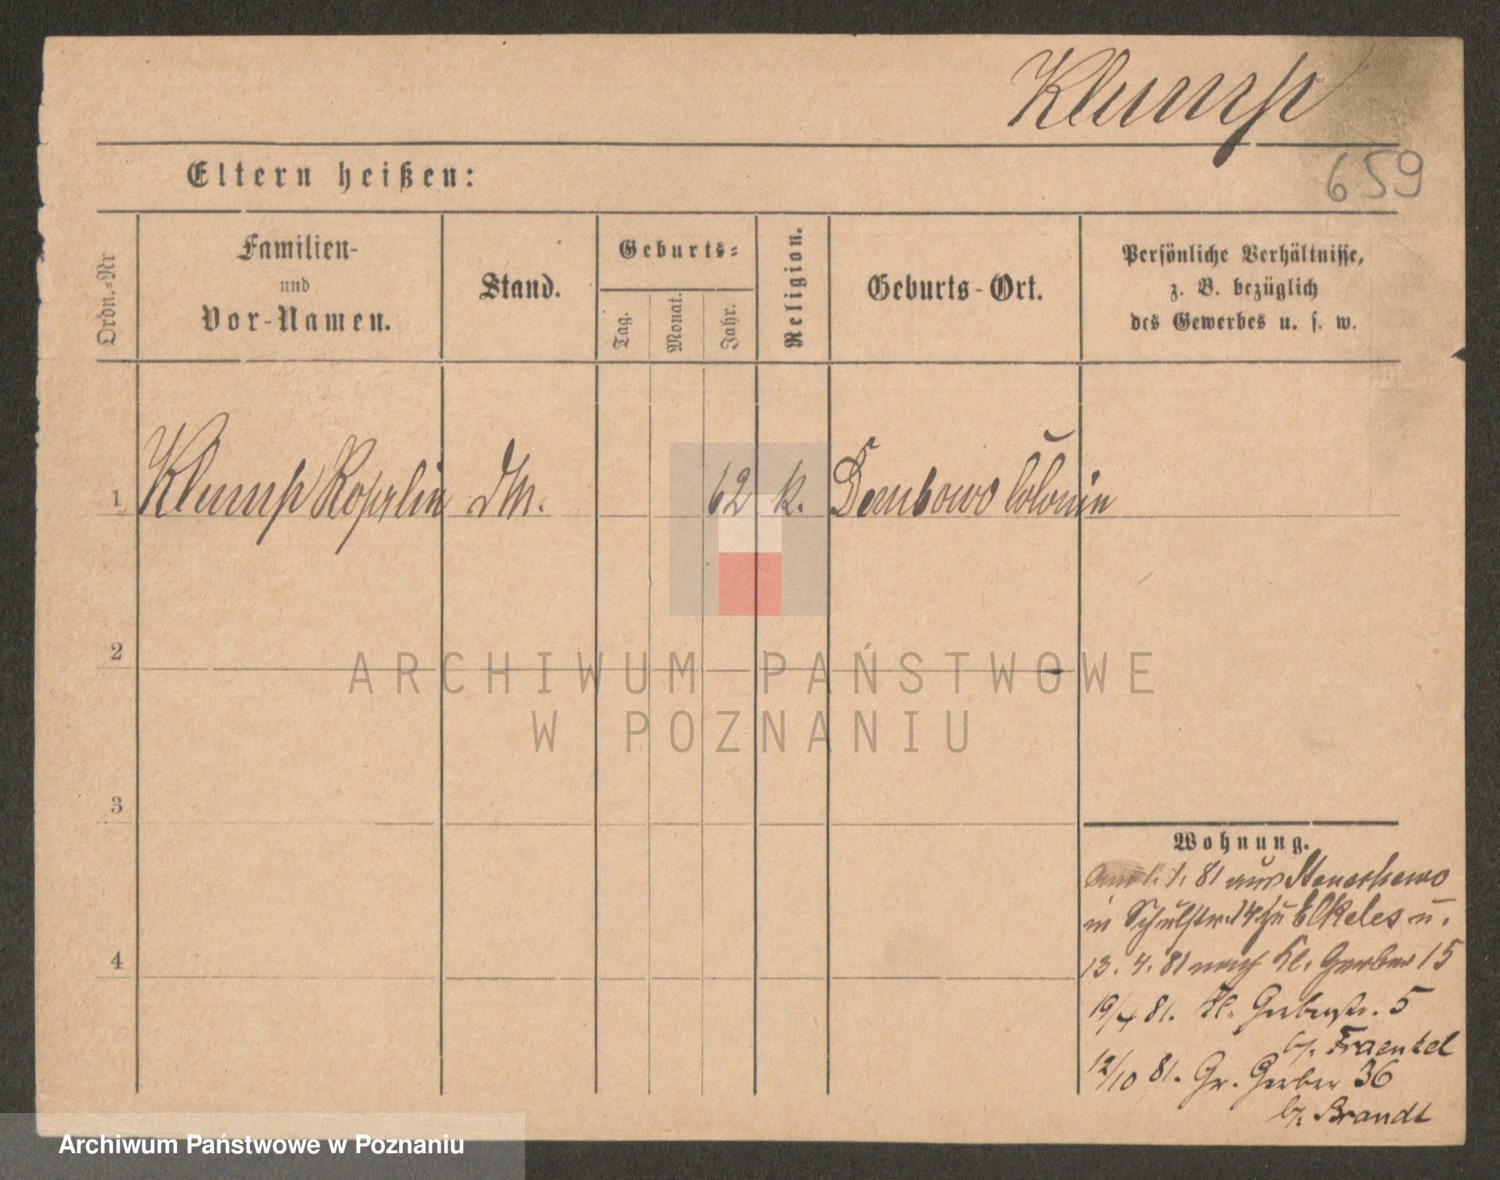 Klump
659
Eltern heißen:
Ordn.-Nr
Familien-
und
Vor-Namen.
Stand.
Geburts-
Tag.
Monat.
Jahr.
Religion.
Geburts-Ort.
Persönliche Verhältnisse,
z. B. bezüglich
des Gewerbes u. s. w.
1 Klump 62 k. Dembowo Colonie
2
3
4
Wohnung.
1. 81 aus
in Schulstr. 14 zu Elkeles u.
13. 4. 81 nach Kl. Gerber 15
19/4 81. Kl. Gerberstr. 5
b/. Fraenkel
12/10 81. Gr. Gerber 36
b/. Brandt
ARCHIWUM PAŃSTWOWE
W POZNANIU
Archiwum Państwowe w Poznaniu